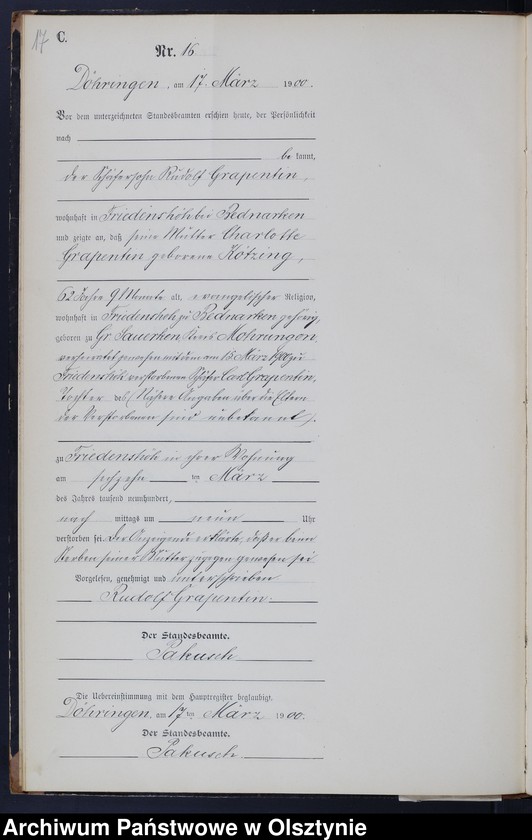 17 C.
Nr. 16
Döhringen, am 17. März 1900.
Vor dem unterzeichneten Standesbeamten erschien heute, der Persönlichkeit
nach
be kannt,
der Schäfersohn Rudolf Grapentin,
wohnhaft in Friedenshöh bei Bednarken
und zeigte an, daß seine Mutter Charlotte
Grapentin geborene Kötzing,
62 Jahre 9 Monate alt, evangelischer Religion,
wohnhaft in Friedenshöh zu Bednarken gehörig,
geboren zu Gr. Sauerken Kreis Mohrungen,
verheiratet gewesen mit dem am 15. März 1900 zu
Friedenshöh verstorbenen Schäfer Carl Grapentin,
Tochter des (Nähere Angaben über die Eltern
der Verstorbenen sind unbekannt).
zu Friedenshöh in ihrer Wohnung
am sechzehn ten März
des Jahres tausend neunhundert,
nach mittags um neun Uhr
verstorben sei. Der Anzeigende erklärte, daß er beim
Sterben seiner Mutter zugegen gewesen sei
Vorgelesen, genehmigt und unterschrieben
Rudolf Grapentin.
Der Standesbeamte.
Pakusch
Die Uebereinstimmung mit dem Hauptregister beglaubigt.
Döhringen, am 17 ten März 1900.
Der Standesbeamte.
Pakusch
Archiwum Państwowe w Olsztynie